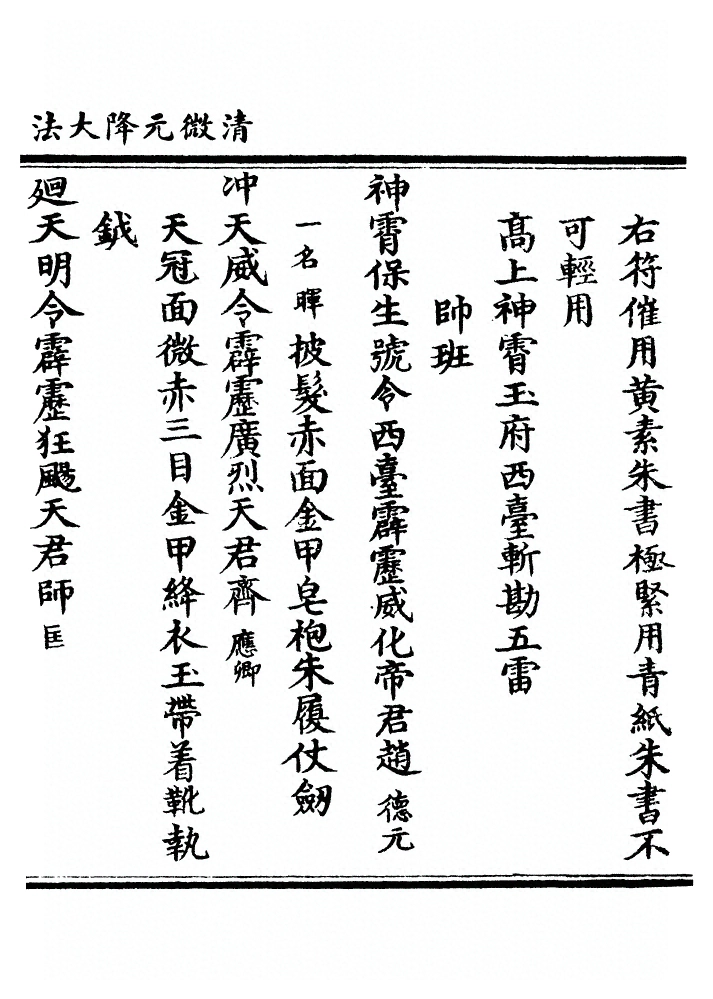 清微元降大法
右符催用黃素朱書極緊用青紙朱書不
可輕用
髙上神霄玉府西臺斬勘五雷
帥班
神霄保生號令西臺霹靂威化帝君趙德元
一名暉披髮赤面金甲皂袍朱履仗劒
冲天威令霹靂廣烈天君齊應卿
天冠面微赤三目金甲絳衣玉帶着靴執
鉞
廻天明令霹靂狂飈天君師匡